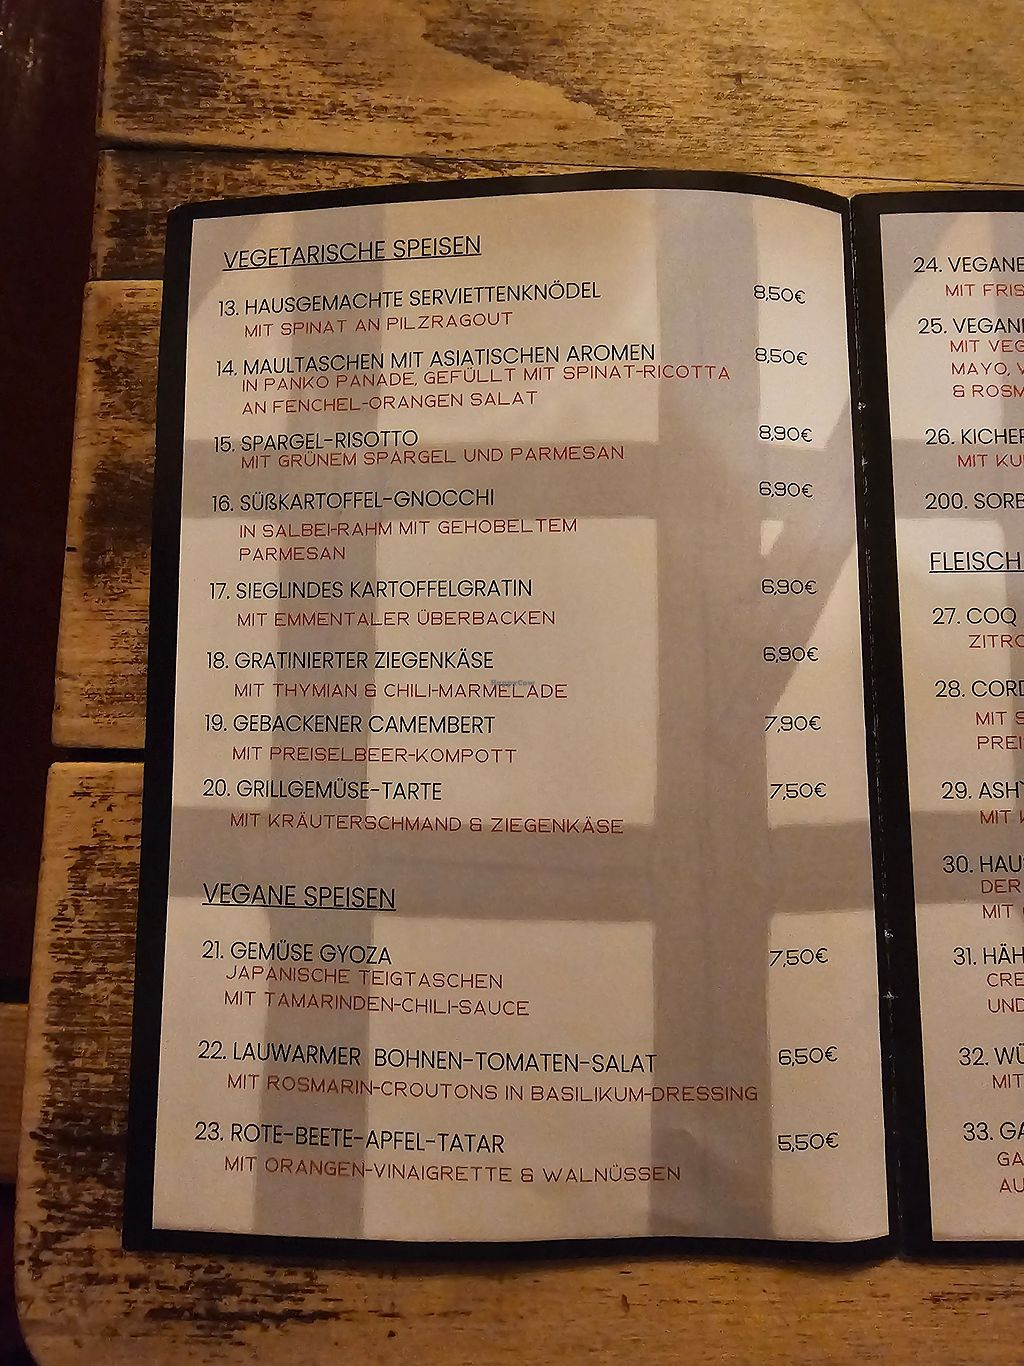 VEGETARISCHE SPEISEN
13. HAUSGEMACHTE SERVIETTENKNÖDEL 8,50€
MIT SPINAT AN PILZRAGOUT
14. MAULTASCHEN MIT ASIATISCHEN AROMEN 8,50€
IN PANKO PANADE, GEFÜLLT MIT SPINAT-RICOTTA
AN FENCHEL-ORANGEN SALAT
15. SPARGEL-RISOTTO 8,90€
MIT GRÜNEM SPARGEL UND PARMESAN
16. SÜßKARTOFFEL-GNOCCHI 6,90€
IN SALBEI-RAHM MIT GEHOBELTEM
PARMESAN
17. SIEGLINDES KARTOFFELGRATIN 6,90€
MIT EMMENTALER ÜBERBACKEN
18. GRATINIERTER ZIEGENKÄSE 6,90€
MIT THYMIAN & CHILI-MARMELADE
19. GEBACKENER CAMEMBERT 7,90€
MIT PREISELBEER-KOMPOTT
20. GRILLGEMÜSE-TARTE 7,50€
MIT KRÄUTERSCHMAND & ZIEGENKÄSE
VEGANE SPEISEN
21. GEMÜSE GYOZA 7,50€
JAPANISCHE TEIGTASCHEN
MIT TAMARINDEN-CHILI-SAUCE
22. LAUWARMER BOHNEN-TOMATEN-SALAT 6,50€
MIT ROSMARIN-CROUTONS IN BASILIKUM-DRESSING
23. ROTE-BEETE-APFEL-TATAR 5,50€
MIT ORANGEN-VINAIGRETTE & WALNÜSSEN
24. VEGANE
MIT FRIS
25. VEGAN
MIT VEG
MAYO, V
& ROSM
26. KICHER
MIT KU
200. SORB
FLEISCH
27. COQ
ZITRO
28. CORD
MIT S
PREI
29. ASH
MIT
30. HAU
DER
MIT
31. HÄH
CRE
UND
32. WÜ
MIT
33. GA
GA
AU
HappyCow